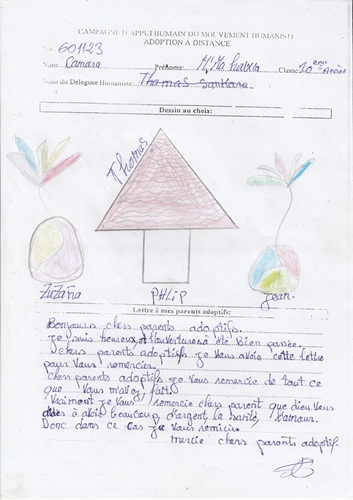 CAMPAGNE D'APPUI HUMAIN DU MOUVEMENT HUMANISTE
ADOPTION A DISTANCE
601123
Nom: Camara Prénoms: M'Mahawa Classe: 10eme Année
Nom du Délégué Humaniste: Thomas Sankara
Dessin au choix:
Thomas
ZuZana PHLiP Jean
Lettre à mes parents adoptifs:
Bonjours chers parents adoptifs.
Je suis heureux, et l'ouverture a été Bien passée.
chers parents adoptifs je Vous avoie cette lettre
pour Vous remercier.
chers parents adoptifs je Vous remercie de tout ce
que Vous m'avez fait.
Vraiment je Vous remercie chers parent que dieu Vous
aides à avoir beaucoup, d'argent, la santé, l'amour.
Donc dans ce cas je Vous remicie.
mercie chers parents adoptif.